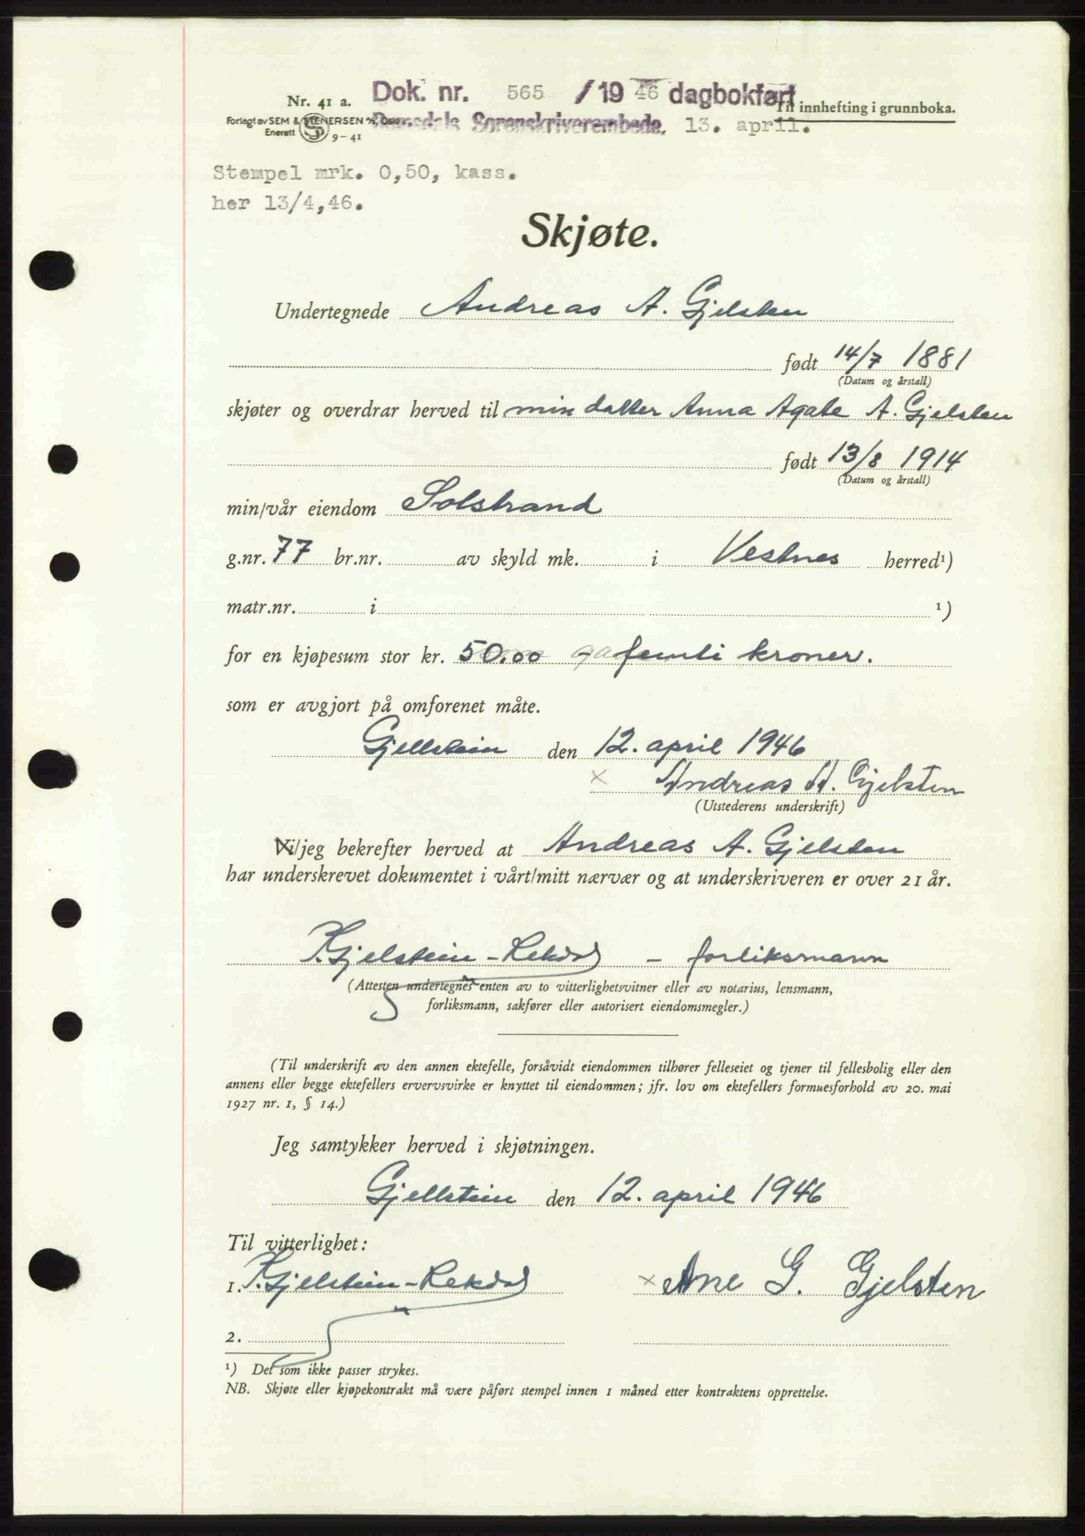 Dok. nr. 565 /19 46 dagbokført
Nr. 41 a. Til innhefting i grunnboka.
Forlagt av SEM & STENERSEN A/S Oslo Sorenskriverembede, 13. april.
Enerett 9-41
Stempel mrk. 0,50, kass.
her 13/4,46.
Skjøte.
Undertegnede Andreas A. Gjelsten
født 14/7 1881
(Datum og årstall)
skjøter og overdrar herved til min datter Anna Agate A. Gjelsten
født 13/8 1914
(Datum og årstall)
min/vår eiendom Solstrand
g.nr. 77 br.nr. av skyld mk. i Vestnes herred¹)
matr.nr. i ¹)
for en kjøpesum stor kr. 50.00 femti kroner.
som er avgjort på omforenet måte.
Gjellstein den 12. april 1946
x Andreas A. Gjelsten
(Utstederens underskrift)
Vi/jeg bekrefter herved at Andreas A. Gjelsten
har underskrevet dokumentet i vårt/mitt nærvær og at underskriveren er over 21 år.
P. Gjelstein-Rekdal - forliksmann
(Attesten undertegnes enten av to vitterlighetsvitner eller av notarius, lensmann,
forliksmann, sakfører eller autorisert eiendomsmegler.)
(Til underskrift av den annen ektefelle, forsåvidt eiendommen tilhører felleseiet og tjener til fellesbolig eller den
annens eller begge ektefellers ervervsvirke er knyttet til eiendommen; jfr. lov om ektefellers formuesforhold av 20. mai
1927 nr. 1, § 14.)
Jeg samtykker herved i skjøtningen.
Gjellstein den 12. april 1946
Til vitterlighet:
1. P. Gjelstein-Rekdal x Ane G. Gjelsten
2.
¹) Det som ikke passer strykes.
NB. Skjøte eller kjøpekontrakt må være påført stempel innen 1 måned etter kontraktens opprettelse.